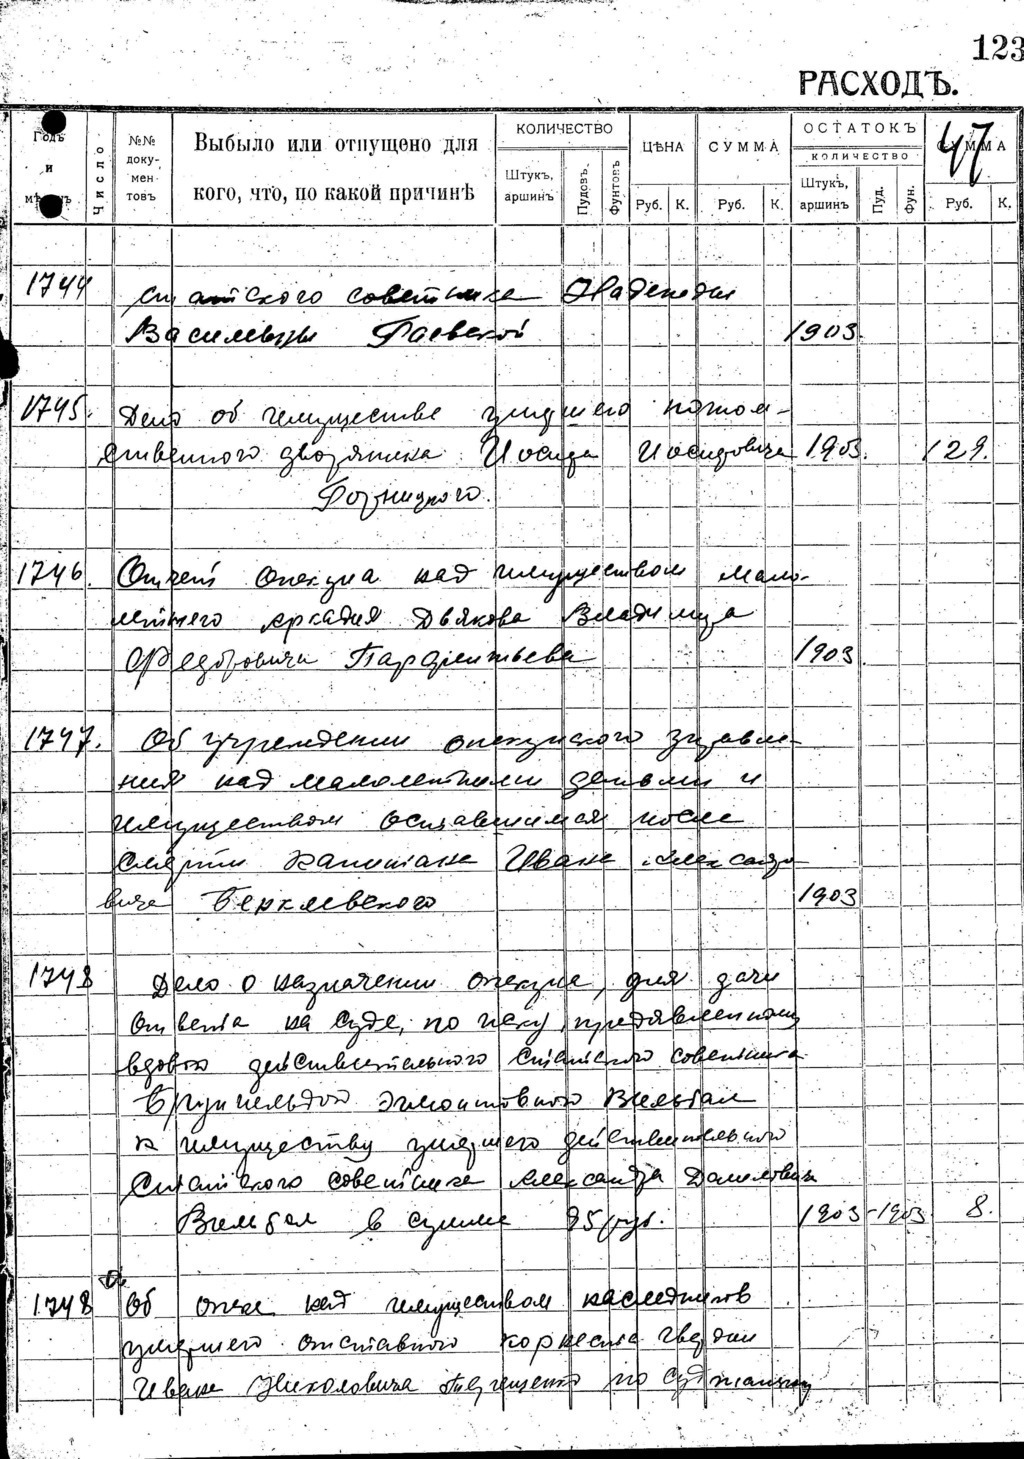 123
РАСХОДЪ.
47
Годъ и мѣсяцъ
Число
№№ доку-мен-товъ
Выбыло или отпущено для кого, что, по какой причинѣ
КОЛИЧЕСТВО
Штукъ, аршинъ
Пудовъ.
Фунтовъ
ЦѢНА
Руб. К.
СУММА
Руб. К.
ОСТАТОКЪ
КОЛИЧЕСТВО
Штукъ, аршинъ
Пуд.
Фун.
СУММА
Руб. К.
1744 статского советника Надежды
Васильевны Гаевской 1903
1745. Дело об имуществе умершего потом-
ственного дворянина Иосифа Иосифовича 1903. 129.
1746. Отчет опекуна над имуществом мало-
летнего Аркадия Дьякова Владимира
Федоровича Парфентьева 1903
1747. Об учреждении опекунского управле-
ния над малолетними детьми и
имуществом оставшимся после
смерти капитана Ивана Александро
вича 1903
1748 Дело о назначении опекуна, для дачи
ответа на суде, по иску, предъявленному
вдовою действительного статского советника
Брунгильдою Вильбал
к имуществу умершего действительного
статского советника Александра Даниловича
Вильбал в сумме 95 руб. 1903-1903 8.
1748 а Об опеке над имуществом наследников
умершего отставного корнета гвардии
Ивана Николовича по